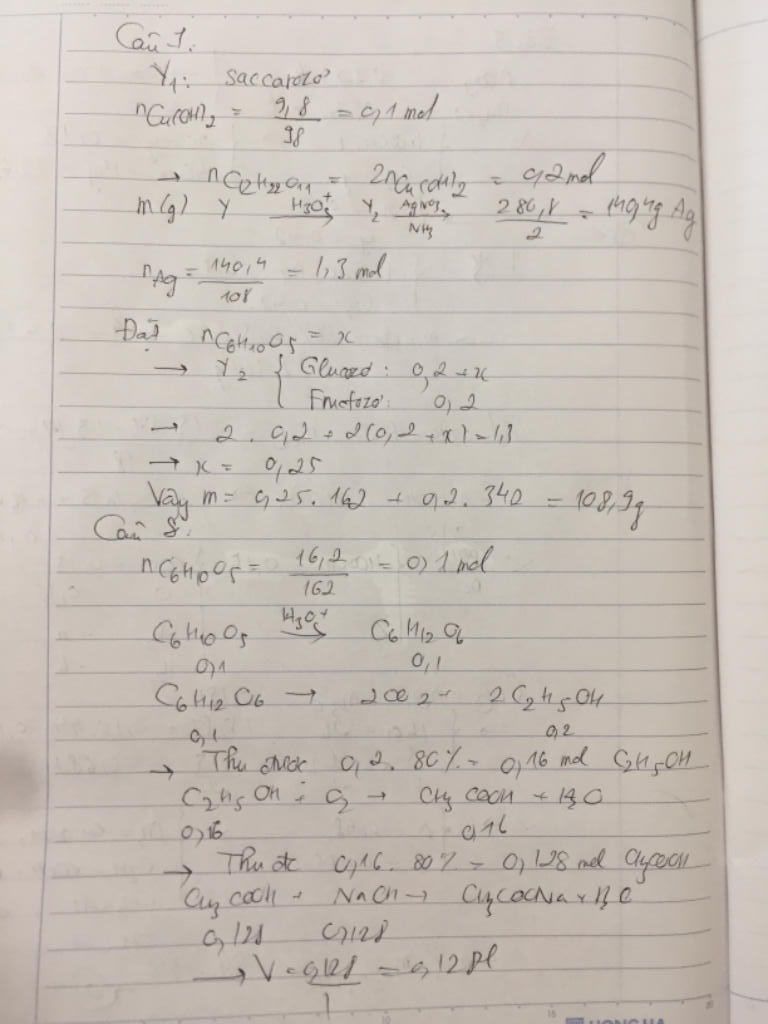 Câu 7:
Y1: Saccarozơ
nCu(OH)2 = 9,8/98 = 0,1 mol
→ nC12H22O11 = 2nCu(OH)2 = 0,2 mol
m(g) Y H3O+ → Y2 AgNO3/NH3 → 280,8/2 = 140,4g Ag
nAg = 140,4/108 = 1,3 mol
Đặt nC6H10O5 = x
→ Y2 { Glucozơ: 0,2 + x
Fructozơ: 0,2
→ 2 . 0,2 + 2(0,2 + x) = 1,3
→ x = 0,25
Vậy m = 0,25. 162 + 0,2. 340 = 108,9g
Câu 8:
nC6H10O5 = 16,2/162 = 0,1 mol
C6H10O5 H3O+ → C6H12O6
0,1 0,1
C6H12O6 → 2CO2 + 2C2H5OH
0,1 0,2
→ Thu được 0,2. 80% = 0,16 mol C2H5OH
C2H5OH + O2 → CH3COOH + H2O
0,16 0,16
→ Thu đc 0,16. 80% = 0,128 mol CH3COOH
CH3COOH + NaOH → CH3COONa + H2O
0,128 0,128
→ V = 0,128/1 = 0,128l
HONG HA